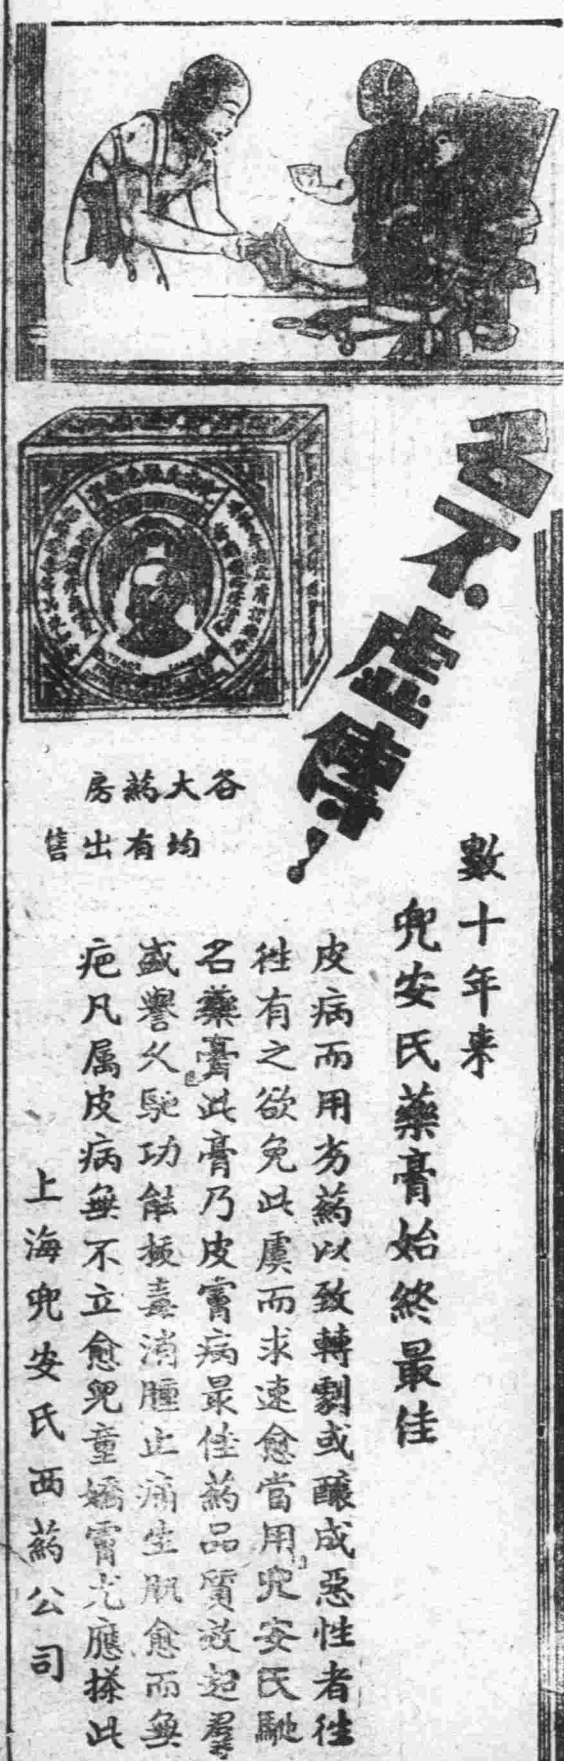 名不虛傳！
數十年来
兜安氏藥膏始終最佳
皮病而用劣葯以致轉劇或釀成惡性者徃
徃有之欲免此虞而求速愈當用兜安氏馳
名藥膏此膏乃皮膚病最佳葯品質效超羣
盛譽久馳功能拔毒消腫止痛生肌愈而無
疤凡属皮病無不立愈兒童嬌膚尤應搽此
各大葯房
均有出售
上海兜安氏西葯公司